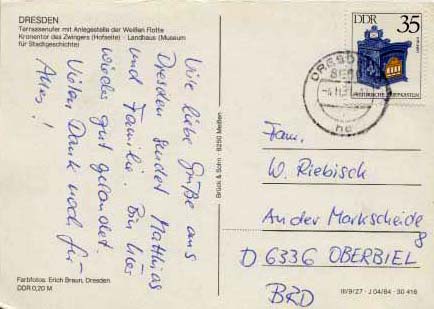 DRESDEN
Terrassenufer mit Anlegestelle der Weißen Flotte
Kronentor des Zwingers (Hofseite) · Landhaus (Museum
für Stadtgeschichte)
Viele liebe Grüße aus
Dresden sendet Matthias
und Familie. Bin hier
wieder gut gelandet.
Vielen Dank noch für
Alles!
Farbfotos: Erich Braun, Dresden
DDR 0,20 M
Brück & Sohn · 8250 Meißen
DDR 35
HISTORISCHE BRIEFKÄSTEN
DRESDEN
Fam.
W. Riebisch
An der Markscheide 8
D 6336 OBERBIEL
BRD
III/9/27 · J 04/84 · 30 416